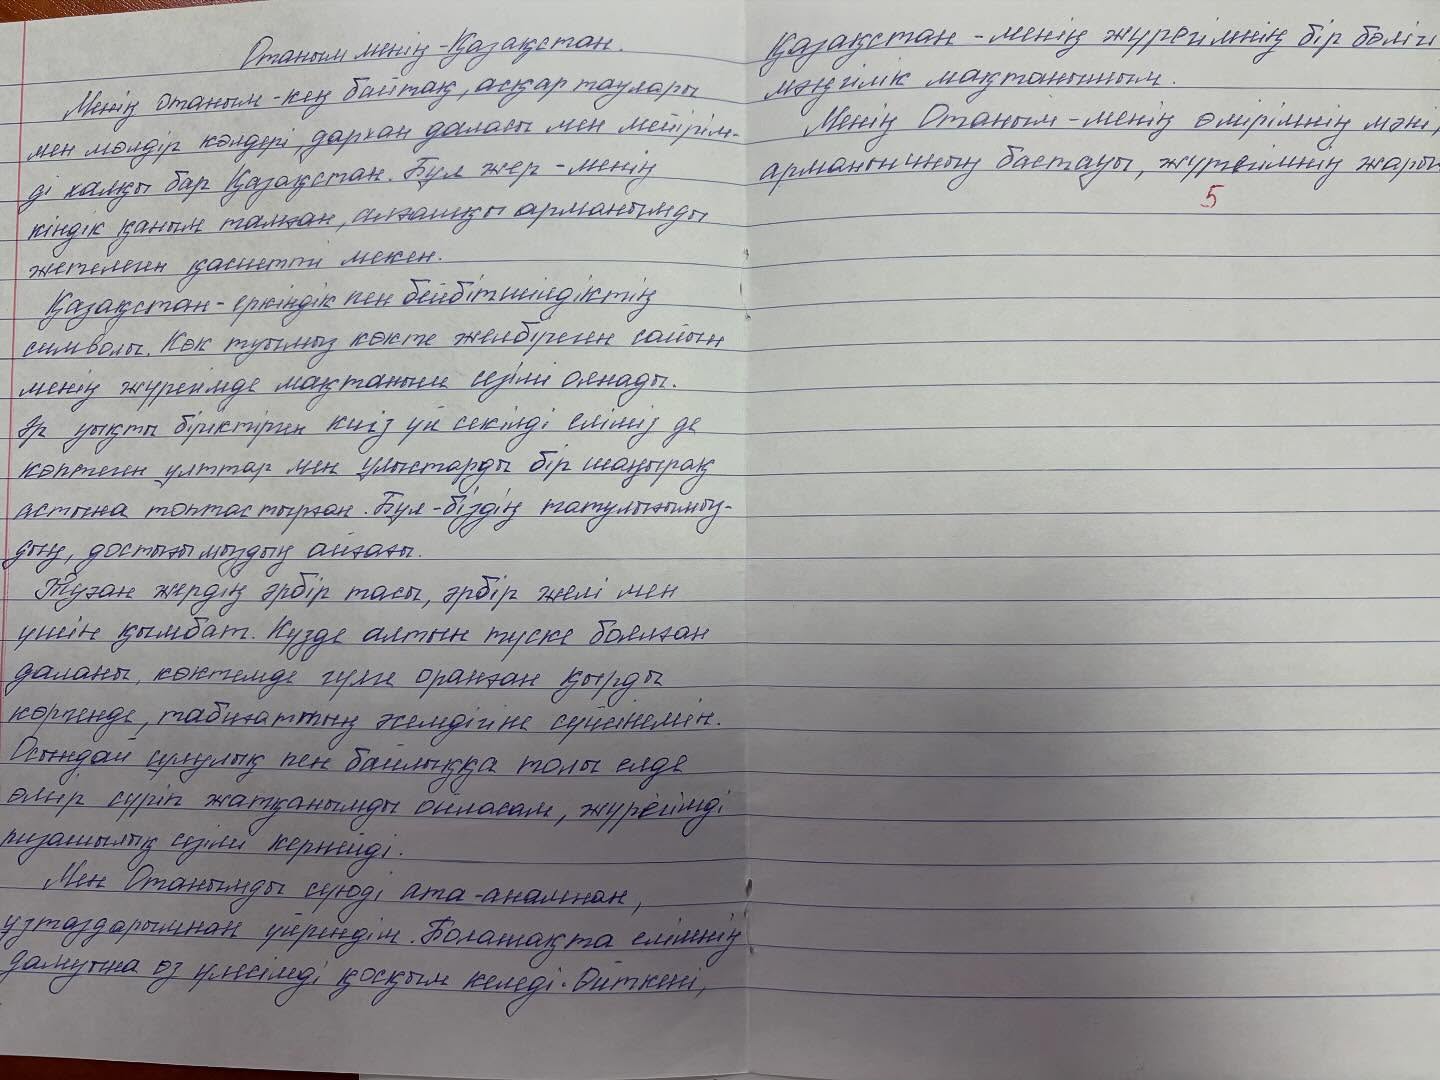 Отаным менің - Қазақстан.
Менің Отаным - кең байтақ, асқар таулары
мен мөлдір көлдері, дархан даласы мен мейірім-
ді халқы бар Қазақстан. Бұл жер - менің
кіндік қаным тамған, алғашқы арманымды
жетелеген қасиетті мекен.
Қазақстан - еркіндік пен бейбітшіліктің
символы. Көк туымыз көкте желбіреген сайын
менің жүрегімде мақтаныш сезімі оянады.
Әр уықты біріктірген киіз үй секілді еліміз де
көптеген ұлттар мен ұлыстарды бір шаңырақ
астына топтастырған. Бұл - біздің татулығымыз-
дың, достығымыздың айғағы.
Туған жердің әрбір тасы, әрбір желі мен
үшін қымбат. Күзде алтын түске боялған
даланы, көктемде гүлге оранған қырды
көргенде, табиғаттың әсемдігіне сүйсінемін.
Осындай сұлулық пен байлыққа толы елде
өмір сүріп жатқанымды ойласам, жүрегімді
ризашылық сезімі кернейді.
Мен Отанымды сүюді ата-анамнан,
ұзтаздарымнан үйрендім. Болашақта елімнің
дамуына өз үлесімді қосқым келеді. Өйткені,
Қазақстан - менің жүрегімнің бір бөлігі
мәңгілік мақтанышым.
Менің Отаным - менің өмірімнің мәні,
арманымның бастауы, жүрегімнің
5